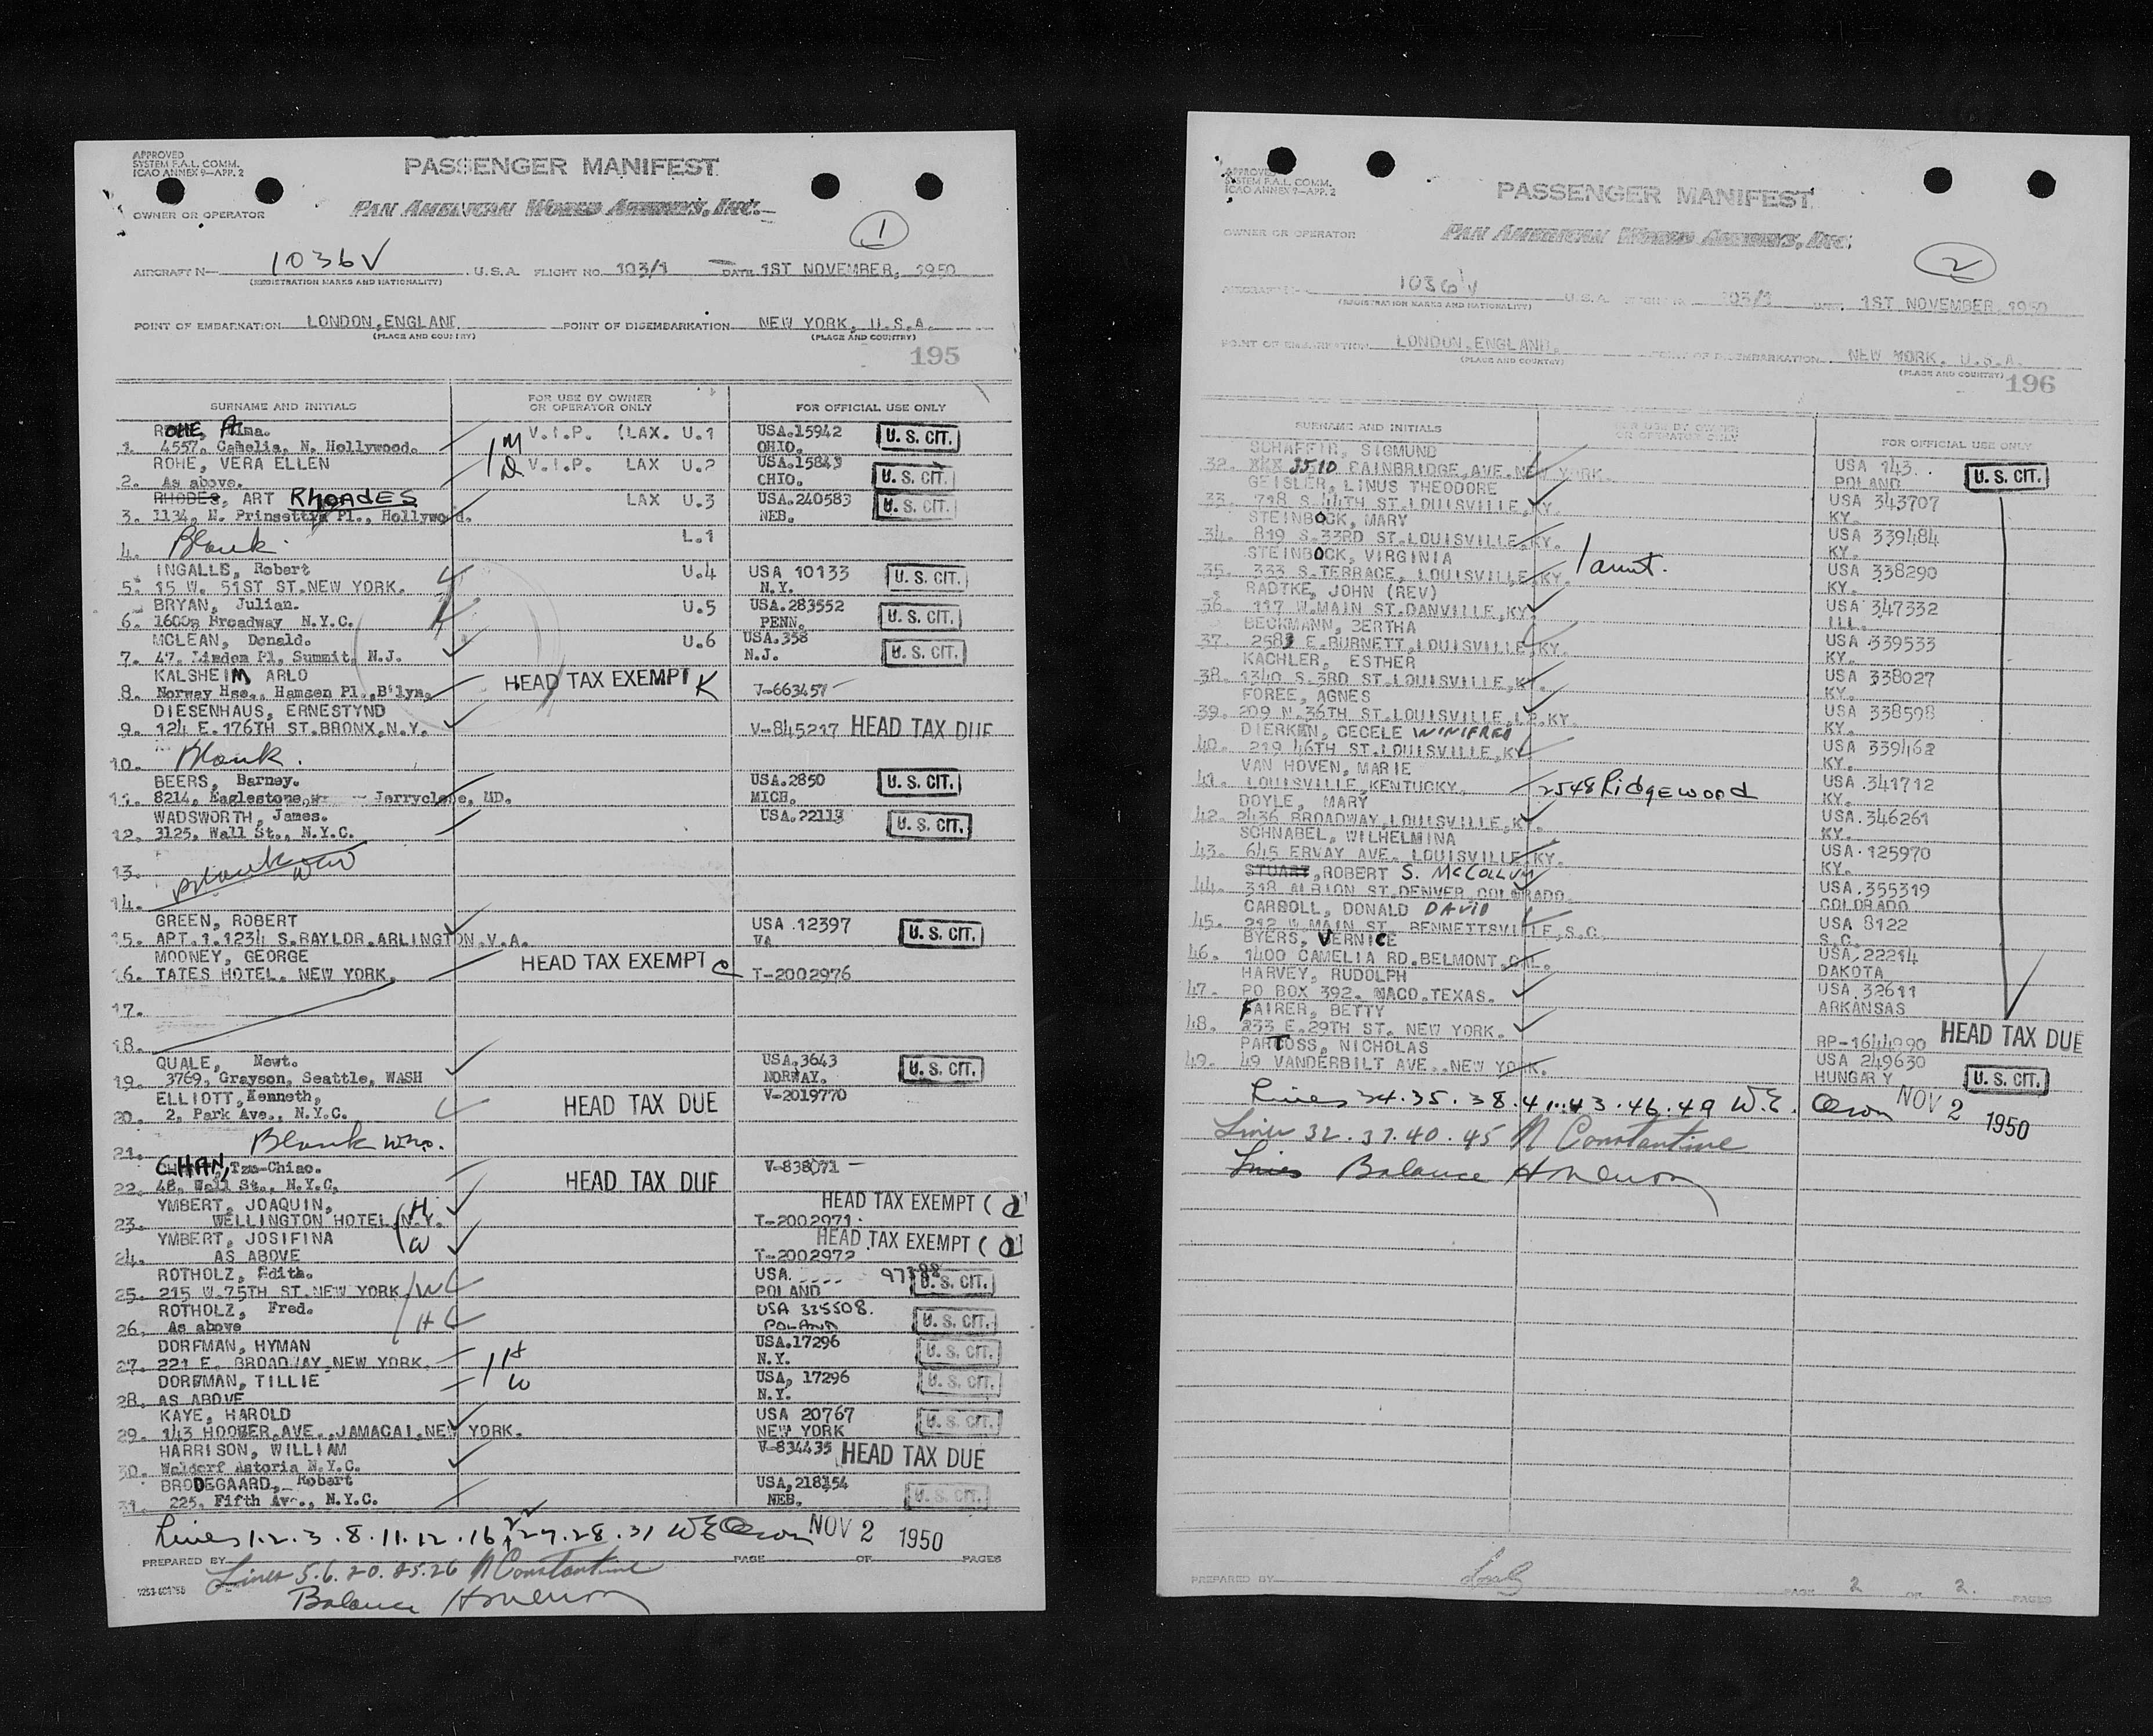 APPROVED
SYSTEM F.A.L. COMM.
ICAO ANNEX 9—APP. 2
PASSENGER MANIFEST
OWNER OR OPERATOR
PAN AMERICAN WORLD AIRWAYS, INC.
1
AIRCRAFT N— 1036V U.S.A. FLIGHT NO. 103/1 DATE 1ST NOVEMBER, 1950
(REGISTRATION MARKS AND NATIONALITY)
POINT OF EMBARKATION LONDON, ENGLAND POINT OF DISEMBARKATION NEW YORK, U.S.A.
(PLACE AND COUNTRY) (PLACE AND COUNTRY)
195
SURNAME AND INITIALS FOR USE BY OWNER OR OPERATOR ONLY FOR OFFICIAL USE ONLY
ROHE, Alma. V.I.P. (LAX. U.1 USA.15942 U. S. CIT.
1. 4557. Camelia, N. Hollywood. M OHIO.
ROHE, VERA ELLEN D V.I.P. LAX U.2 USA.15843 U. S. CIT.
2. As above. OHIO.
RHODES, ART RHOADES LAX U.3 USA.240583 U. S. CIT.
3. 1134, N. Prinsettya Pl., Hollywood. NEB.
4. Blank. L.1
INGALLS, Robert U.4 USA 10133 U. S. CIT.
5. 15 W. 51ST ST. NEW YORK. N.Y.
BRYAN, Julian. U.5 USA.283552 U. S. CIT.
6. 1600, Broadway N.Y.C. PENN.
MCLEAN, Donald. U.6 USA.358 U. S. CIT.
7. 47. Linden Pl, Summit, N.J. N.J.
KALSHEIM ARLO HEAD TAX EXEMPT K
8. Norway Hse., Hansen Pl., B'lyn. V-663457
DIESENHAUS, ERNESTYND
9. 124 E. 176TH ST. BRONX, N.Y. V-845217 HEAD TAX DUE
10. Blank.
BEERS, Barney. USA.2850 U. S. CIT.
11. 8214, Eaglestone, Jerryclose, MD. MICH.
WADSWORTH, James. USA.22113 U. S. CIT.
12. 3125, Wall St., N.Y.C.
13. Blank
14.
GREEN, ROBERT USA.12397 U. S. CIT.
15. APT.1.1234 S. RAYLOR. ARLINGTON. V.A. VA
MOONEY, GEORGE HEAD TAX EXEMPT C
16. TATES HOTEL. NEW YORK. T-2002976
17.
18.
QUALE, Newt. USA.3643 U. S. CIT.
19. 3769, Grayson, Seattle, WASH NORWAY.
ELLIOTT, Kenneth, HEAD TAX DUE V-2019770
20. 2, Park Ave., N.Y.C.
21. Blank
CHAN, Tzu-Chiao. HEAD TAX DUE V-838071
22. 48, Wall St., N.Y.C.
YMBERT, JOAQUIN, H HEAD TAX EXEMPT
23. WELLINGTON HOTEL, N.Y. T-2002971.
YMBERT, JOSIFINA W HEAD TAX EXEMPT
24. AS ABOVE T-2002972
ROTHOLZ, Edith. USA. U. S. CIT.
25. 215 W. 75TH ST. NEW YORK W POLAND
ROTHOLZ, Fred. USA 335508. U. S. CIT.
26. As above H POLAND
DORFMAN, HYMAN H USA.17296 U. S. CIT.
27. 221 E. BROADWAY, NEW YORK. N.Y.
DORFMAN, TILLIE W USA, 17296 U. S. CIT.
28. AS ABOVE N.Y.
KAYE, HAROLD USA 20767 U. S. CIT.
29. 143 HOOVER, AVE., JAMACAI, NEW YORK. NEW YORK
HARRISON, WILLIAM V-834435 HEAD TAX DUE
30. Waldorf Astoria N.Y.C.
BRODEGAARD, Robert USA,218354 U. S. CIT.
31. 225, Fifth Ave., N.Y.C. NEB.
Lines 1.2.3.8.11.12.16.22.27.28.31 W E Oson NOV 2 1950
PREPARED BY PAGE OF PAGES
Lines 5.6.20.25.26 N Constantine
Balance
APPROVED
SYSTEM F.A.L. COMM.
ICAO ANNEX 9—APP. 2
PASSENGER MANIFEST
OWNER OR OPERATOR
PAN AMERICAN WORLD AIRWAYS, INC.
2
AIRCRAFT N— 1036V U.S.A. FLIGHT NO. 103/1 DATE 1ST NOVEMBER, 1950
(REGISTRATION MARKS AND NATIONALITY)
POINT OF EMBARKATION LONDON, ENGLAND. POINT OF DISEMBARKATION NEW YORK, U.S.A.
(PLACE AND COUNTRY) (PLACE AND COUNTRY)
196
SURNAME AND INITIALS FOR USE BY OWNER OR OPERATOR ONLY FOR OFFICIAL USE ONLY
SCHAFFIR, SIGMUND USA 143. U. S. CIT.
32. 3510 BAINBRIDGE, AVE. NEW YORK. POLAND.
GEISLER, LINUS THEODORE USA 343707
33. 718 S. 44TH ST. LOUISVILLE, KY. KY.
STEINBOCK, MARY USA 339484
34. 819 S. 33RD ST. LOUISVILLE, KY. KY.
STEINBOCK, VIRGINIA aunt. USA 338290
35. 333 S. TERRACE, LOUISVILLE, KY. KY.
RADTKE, JOHN (REV) USA 347332
36. 117 W. MAIN ST. DANVILLE, KY. ILL.
BECKMANN, BERTHA USA 339533
37. 2583 E. BURNETT, LOUISVILLE, KY. KY.
KACHLER, ESTHER USA 338027
38. 1340 S. 3RD ST. LOUISVILLE, KY. KY.
FOREE, AGNES USA 338598
39. 209 N. 36TH ST. LOUISVILLE, 12, KY. KY.
DIERKEN, CECELE WINIFRED USA 339462
40. 219 46TH ST. LOUISVILLE, KY. KY.
VAN HOVEN, MARIE USA.341712
41. LOUISVILLE, KENTUCKY. 2548 Ridgewood KY.
DOYLE, MARY USA.346261
42. 2436 BROADWAY, LOUISVILLE, KY. KY.
SCHNABEL, WILHELMINA USA.125970
43. 645 ERVAY AVE. LOUISVILLE, KY. KY.
STUART, ROBERT S. McCOLLUM USA.355319
44. 318 ALBION ST. DENVER. COLORADO. COLORADO
CARROLL, DONALD DAVID USA 8122
45. 212 W. MAIN ST. BENNETTSVILLE, S.C. S.C.
BYERS, VERNICE USA.22214
46. 1400 CAMELIA RD. BELMONT, CAL. DAKOTA
HARVEY, RUDOLPH USA.32611
47. PO BOX 392. WACO. TEXAS. ARKANSAS
FAIRER, BETTY HEAD TAX DUE
48. 233 E. 29TH ST. NEW YORK. RP-1644990
PARTOSS, NICHOLAS USA 249630
49. 49 VANDERBILT AVE., NEW YORK. HUNGARY U. S. CIT.
Lines 34.35.38.41.43.46.49 W.E. Oson NOV 2 1950
Lines 32.37.40.45 N Constantine
Lines Balance
PREPARED BY PAGE 2 OF 2. PAGES